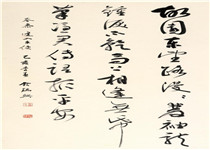 故園東望路漫漫雙袖龍
鍾淚不乾馬上相逢無紙
筆憑君傳語報平安